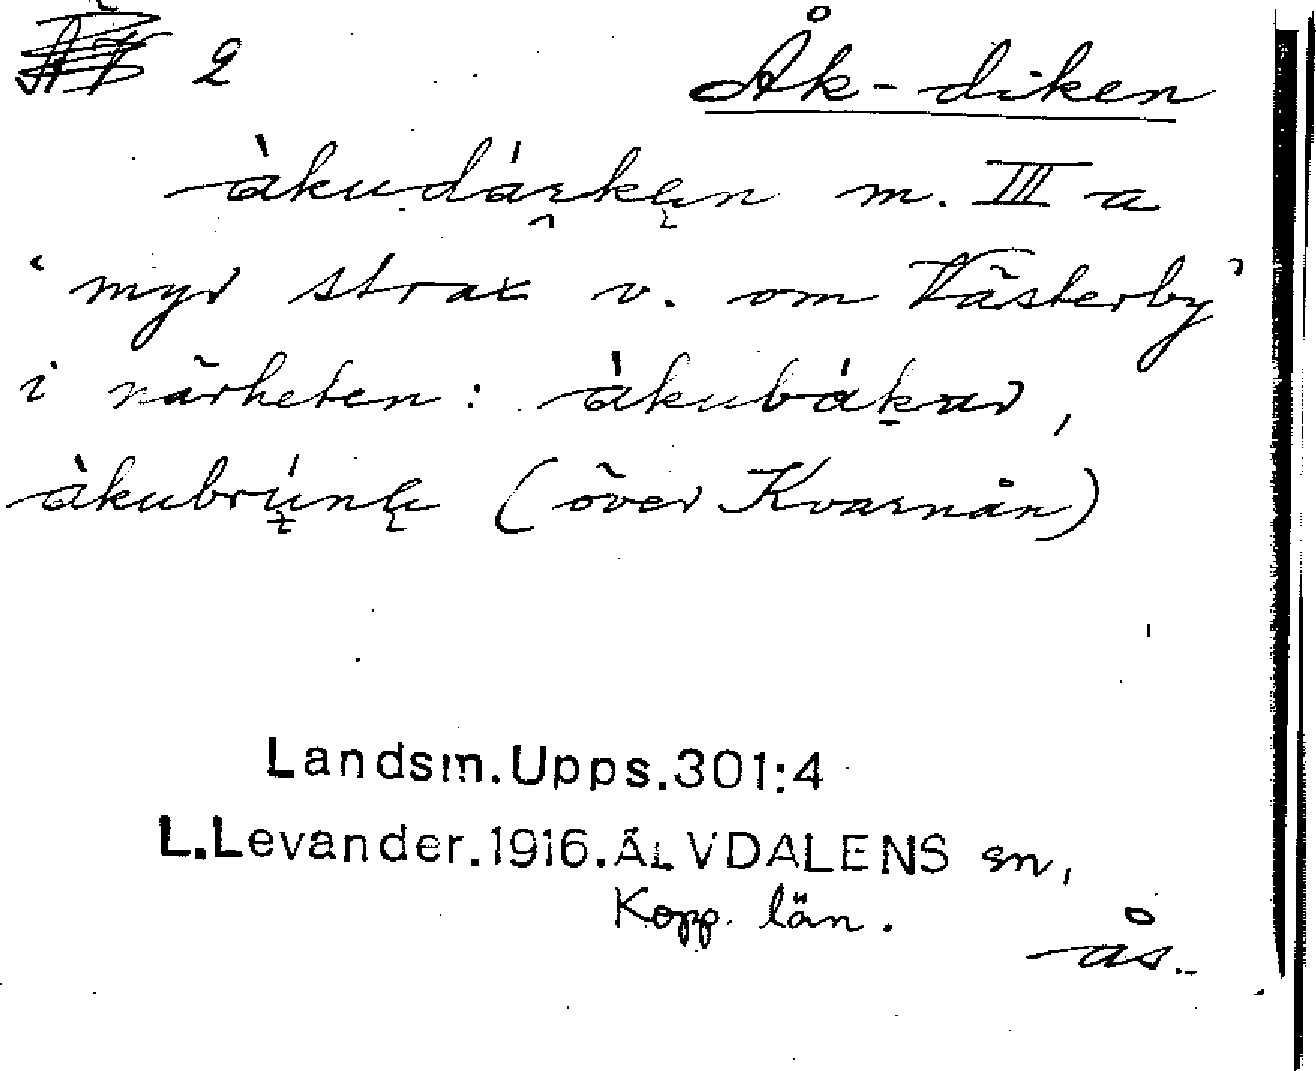 2 Åk-diken
àkudárkęn m. III a
‘myr strax v. om Västerby’
i närheten: àkubákar,
àkubrúnę (över Kvarnån)
Landsm.Upps.301:4
L.Levander.1916.ÄLVDALENS sn,
Kopp. län.
ås.